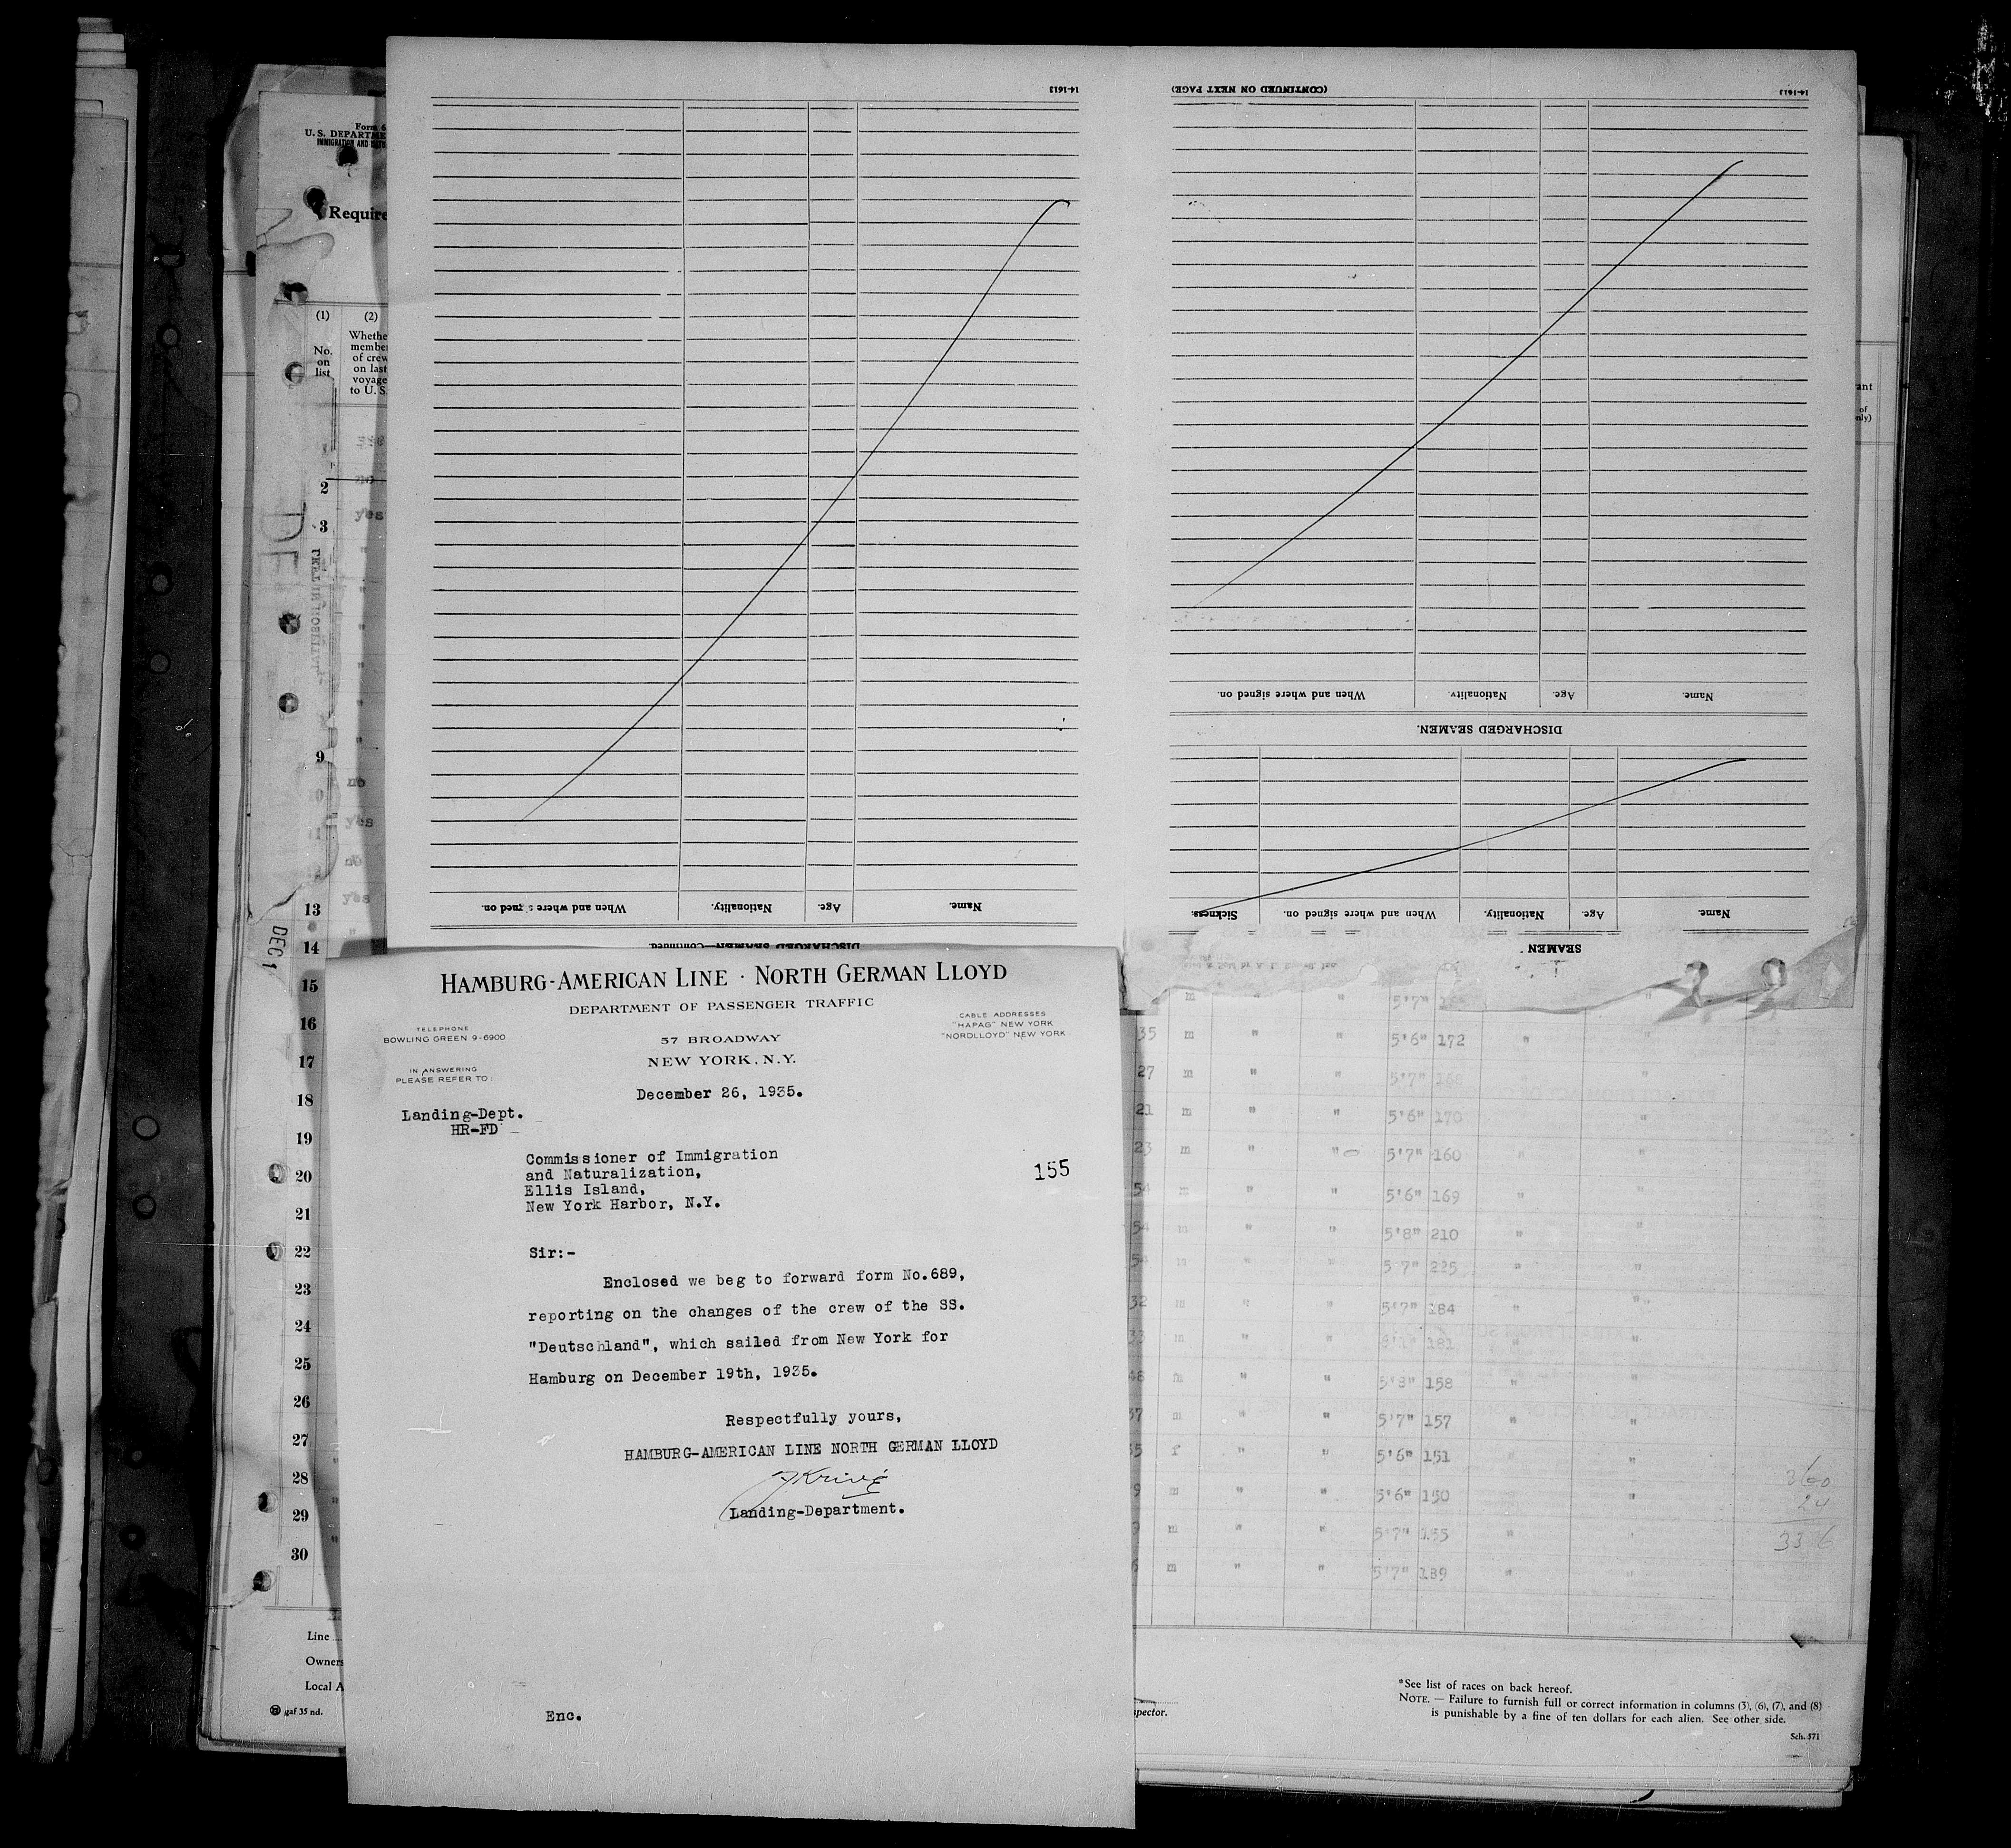 14-1613
(CONTINUED ON NEXT PAGE)
14-1613
When and where signed on.
Nationality.
Age.
Name.
DISCHARGED SEAMEN.
Sickness.
When and where signed on.
Nationality.
Age.
Name.
SEAMEN
When and where signed on.
Nationality.
Age.
Name.
DISCHARGED SEAMEN—Continued.
Form 6
U. S. DEPARTME
IMMIGRATION AND
Require
(1)
(2)
No.
on
list
Whethe
member
of crew
on last
voyage
to U. S.
2 no
3 yes
9
no
yes
no
13 yes
14
15
16
17
18
19
20
21
22
23
24
25
26
27
28
29
30
DEC 1
Line
Owners
Local A
gaf 35 nd.
HAMBURG-AMERICAN LINE · NORTH GERMAN LLOYD
DEPARTMENT OF PASSENGER TRAFFIC
TELEPHONE
BOWLING GREEN 9-6900
57 BROADWAY
NEW YORK, N.Y.
CABLE ADDRESSES
"HAPAG" NEW YORK
"NORDLLOYD" NEW YORK
IN ANSWERING
PLEASE REFER TO:
December 26, 1935.
Landing-Dept.
HR-FD
Commissioner of Immigration
and Naturalization,
Ellis Island,
New York Harbor, N.Y.
155
Sir:-
Enclosed we beg to forward form No.689,
reporting on the changes of the crew of the SS.
"Deutschland", which sailed from New York for
Hamburg on December 19th, 1935.
Respectfully yours,
HAMBURG-AMERICAN LINE NORTH GERMAN LLOYD
Landing-Department.
Enc.
m " " 5'7"
35 m " " 5'6" 172 "
27 m " " 5'7" "
21 m " " 5'6" 170 " "
23 m " " 5'7" 160 " "
54 m " " 5'6" 169 " "
54 m " " 5'8" 210 " "
54 m " " 5'7" 225 " "
32 m " " 5'7" 184 " "
33 m " " 181 " "
48 m " " 5'8" 158 " "
37 m " " 5'7" 157 " "
5 f " " 5'6" 151 "
9 m " " 5'6" 150 " "
m " " 5'7" 155 "
m " " 5'7" 139 " "
360
24
336
spector.
*See list of races on back hereof.
NOTE. — Failure to furnish full or correct information in columns (3), (6), (7), and (8)
is punishable by a fine of ten dollars for each alien. See other side.
Sch. 571